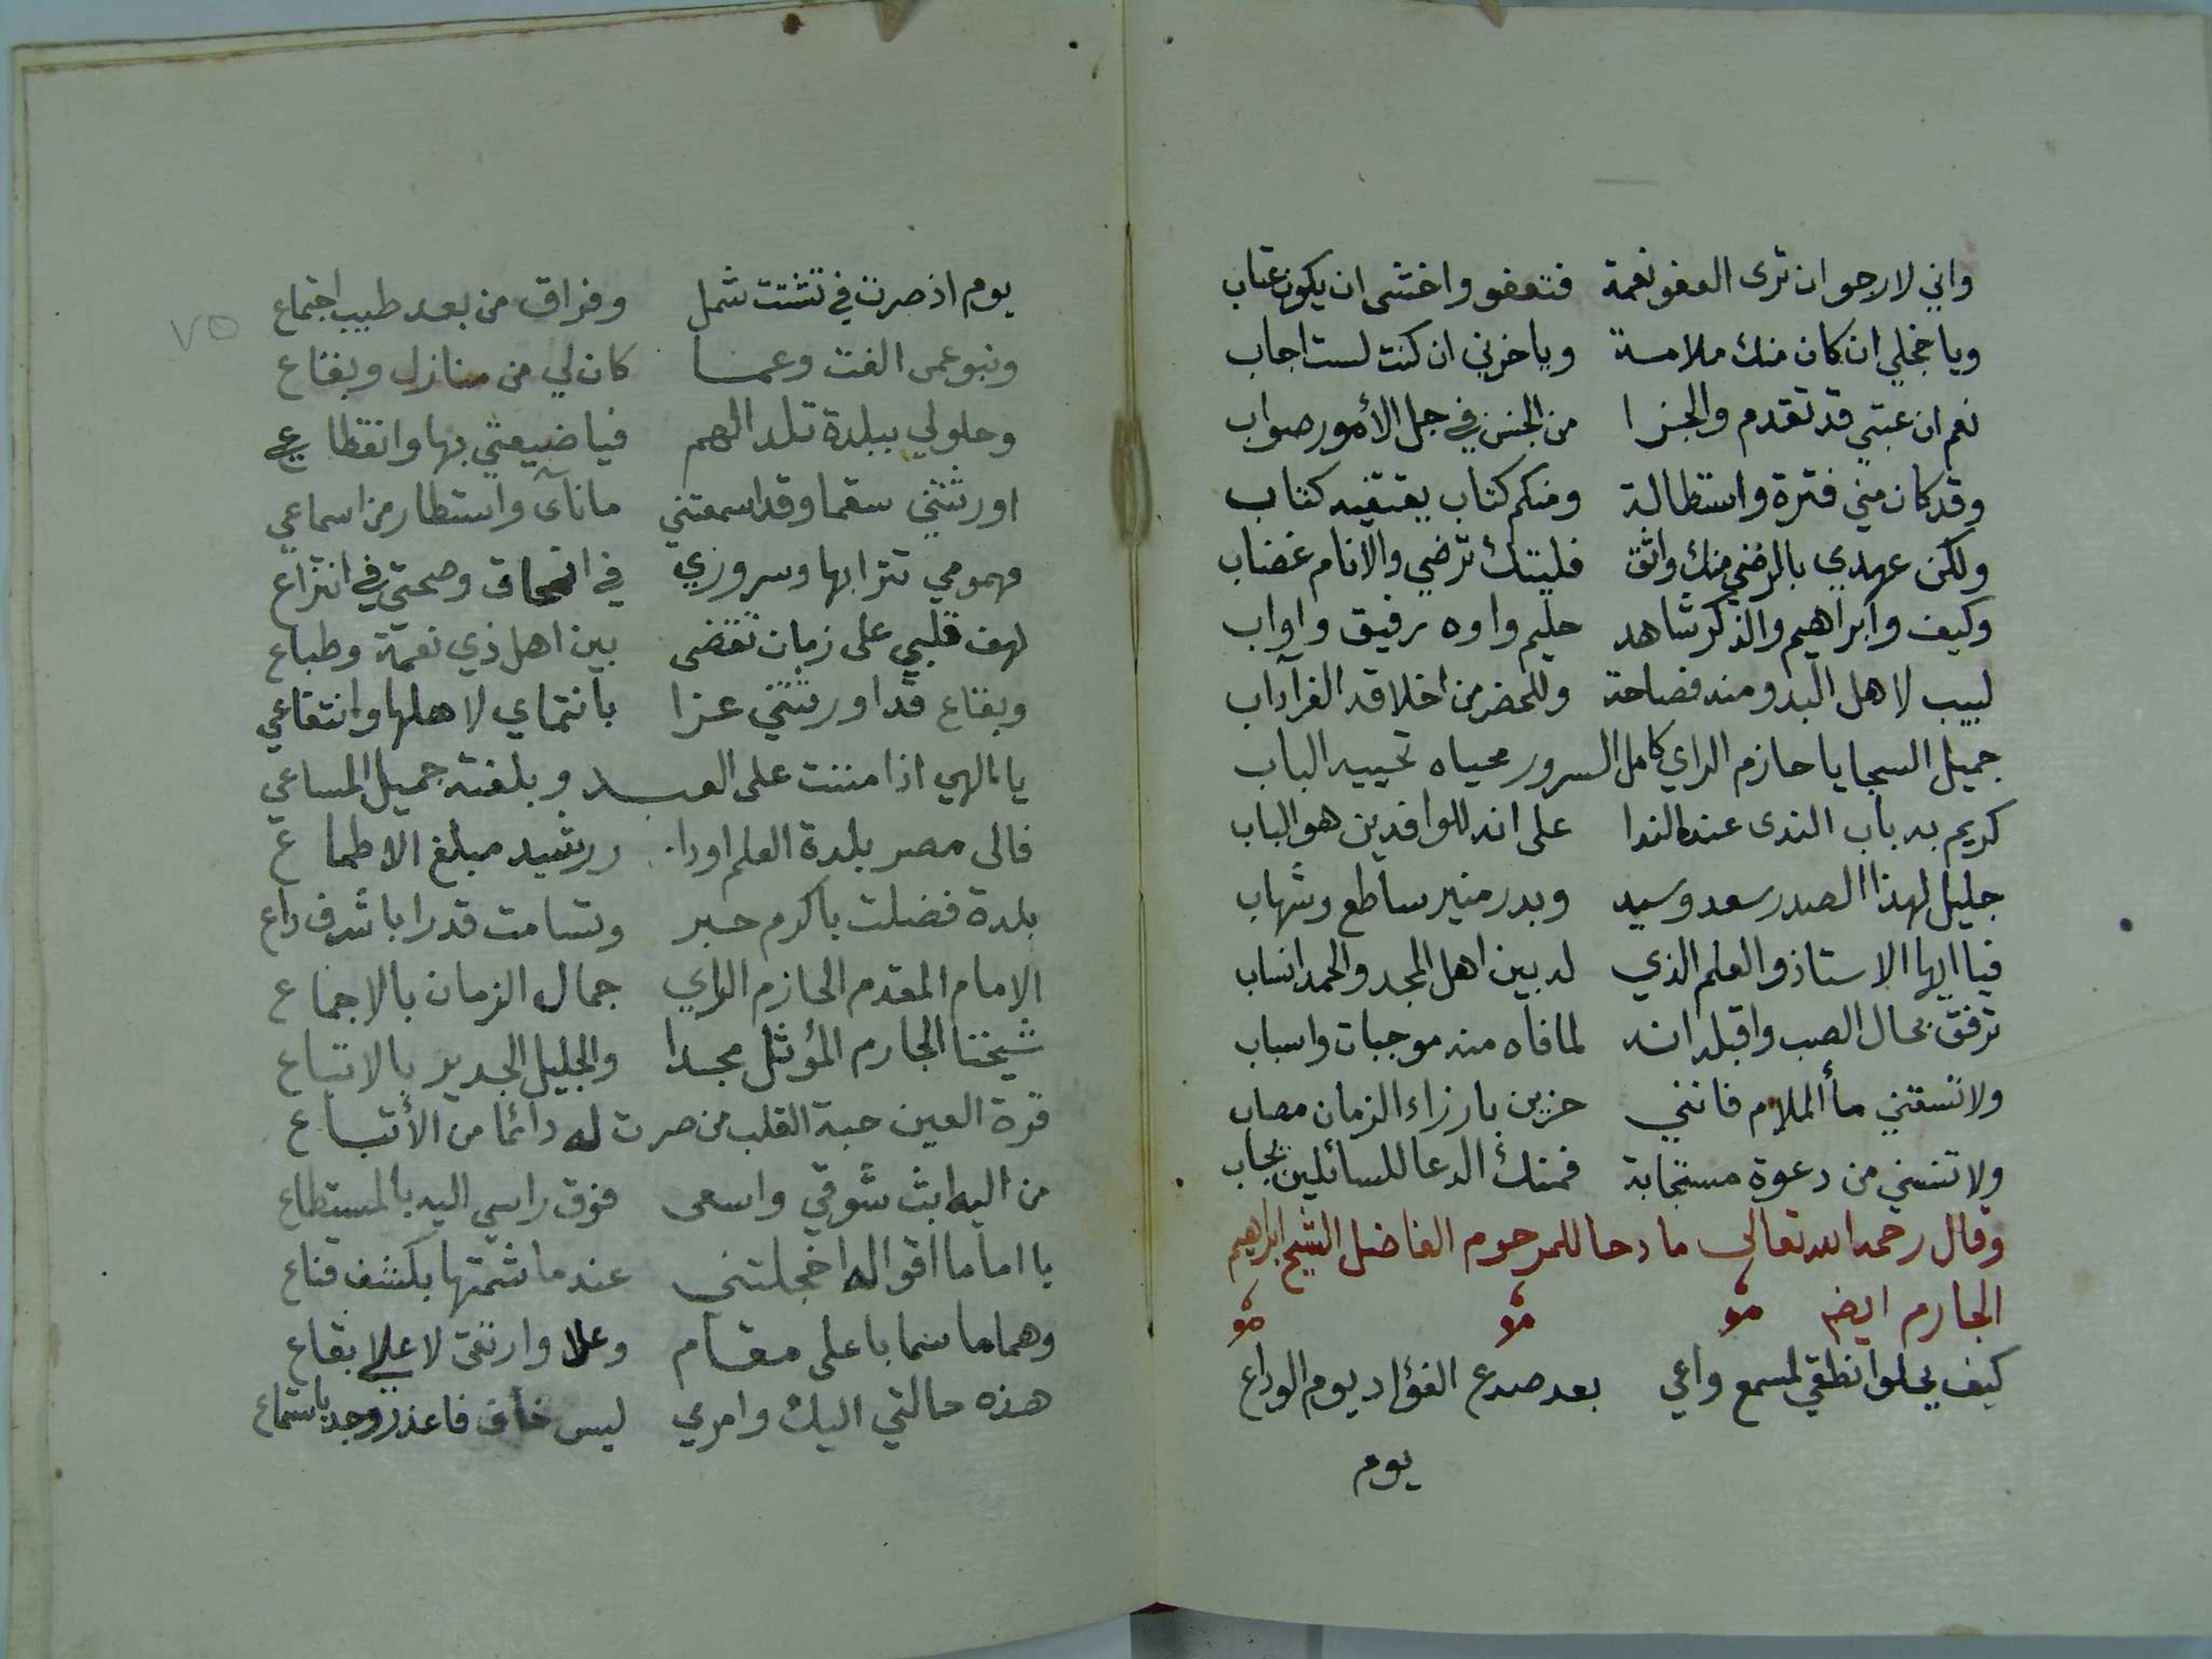 واني لارجو ان ترى العفو نعمة فتعفو واخشى ان يكون عتاب
ويا خجلي ان كان منك ملامة ويا حزني ان كنت لست اجاب
نعم ان عتبي قد تقدم والجزا من الجنس في جل الأمور صواب
وقد كان مني فترة واستطالة ومنكم كتاب يقتفيه كتاب
ولكن عهدي بالرضي منك واثق فليتك ترضي والانام غضاب
وكيف وابراهيم والذكر شاهد حليم واوه رفيق واواب
لبيب لاهل البدو منه فصاحة وللحضر من اخلاقه الغر آداب
جميل السجايا حازم الراي كامل السرور محياه تحييه الباب
كريم به باب الندى عند الندا على انه للوافدين هو الباب
جليل لهذا الصدر سعد وسيد وبدر منير ساطع وشهاب
فيا ايها الاستاذ والعلم الذي له بين اهل المجد والحمد انساب
ترفق بحال الصب واقبله انه لما فاه منه موجبات واسباب
ولا تسقني مأ الملام فانني حزين بارزاء الزمان مصاب
ولا تنسني من دعوة مستجابة فمنك الدعا للسائلين يجاب
وقال رحمه الله تعالى مادحا للمرحوم الفاضل الشيخ ابراهيم
الجارم ايضه
كيف يحلوا نطقي لمسمع واعي بعد صدع الفؤاد يوم الوداع
يوم
٧٥
يوم اذ صرت في تشتت شمل وفراق من بعد طيب اجتماع
ونبو عمن الفت وعما كان لي من منازل وبقاع
وحلولي ببلدة تلد الهم فيا ضيعتي بها وانقطاعي
اورثتني سقما وقد اسمعتني ما نآى واستطار من اسماعي
فهمومي تترا بها وسروري في انمحاق وصحتي في انتزاع
لهف قلبي على زمان تقضى بين اهل ذي نعمة وطباع
وبقاع قد اورثتني عزا بانتماي لاهلها وانتفاعي
يا الهي اذا مننت على العبد وبلغته جميل المساعي
فالى مصر بلدة العلم اودا. ررشيد مبلغ الاطماع
بلدة فضلت باكرم حبر وتسامت قدرا باشرف داع
الامام المقدم الحازم الراي جمال الزمان بالاجماع
شيخنا الجارم المؤثل مجدا والجليل الجدير بالاتباع
قرة العين حبة القلب من صرت له دائما من الأتباع
من اليه ابث شوقي واسعى فوق راسي اليه بالمستطاع
يا اماما اقواله اخجلتني عندما شمتها بكشف قناع
وهماما سما باعلى مقام وعلا وارتقى لاعلي بقاع
هذه حالتي اليك وامري ليس خاف فاعذر وجد باستماع